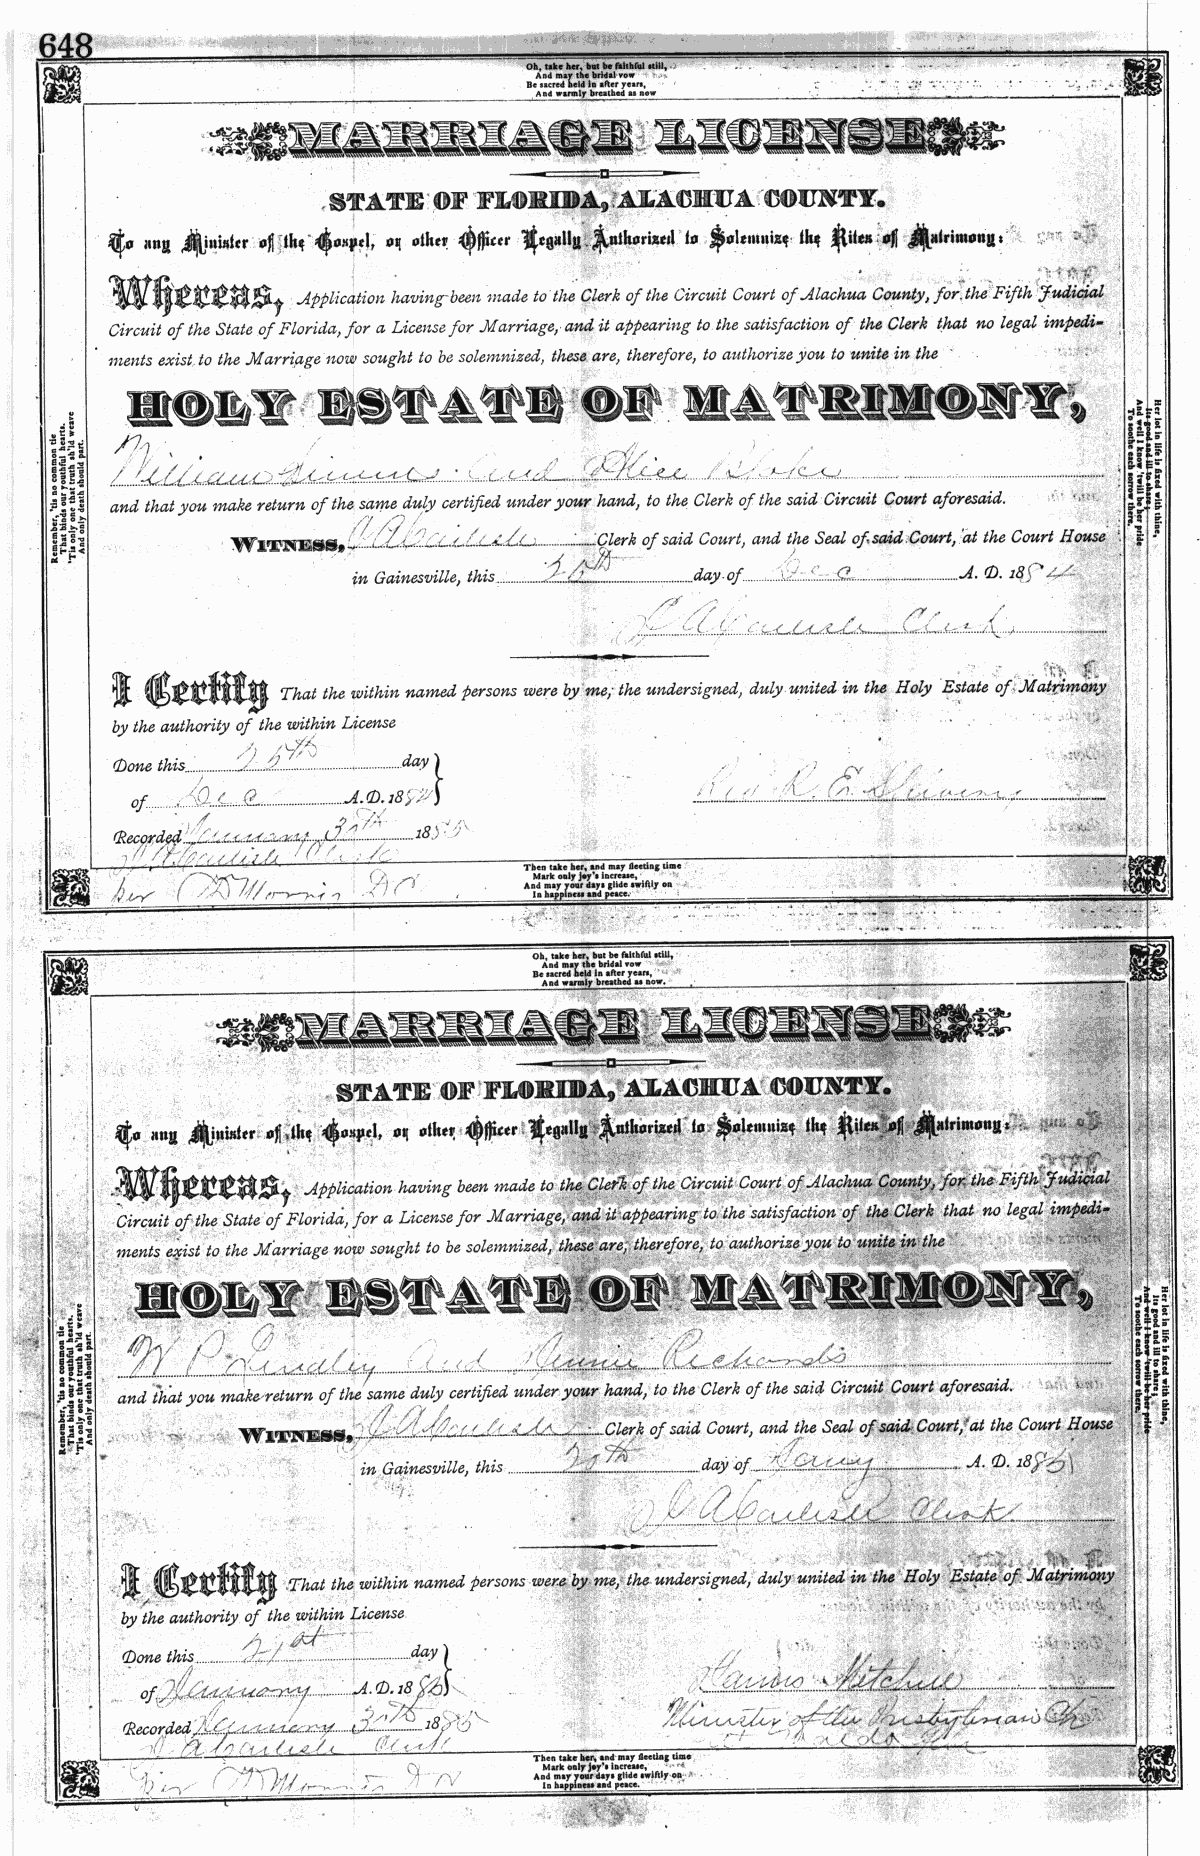 648
Oh, take her, but be faithful still,
And may the bridal vow
Be sacred held in after years,
And warmly breathed as now
MARRIAGE LICENSE
STATE OF FLORIDA, ALACHUA COUNTY.
To any Minister of the Gospel, or other Officer Legally Authorized to Solemnize the Rites of Matrimony:
Whereas, Application having been made to the Clerk of the Circuit Court of Alachua County, for the Fifth Judicial
Circuit of the State of Florida, for a License for Marriage, and it appearing to the satisfaction of the Clerk that no legal impedi-
ments exist to the Marriage now sought to be solemnized, these are, therefore, to authorize you to unite in the
HOLY ESTATE OF MATRIMONY,
William and Alice
and that you make return of the same duly certified under your hand, to the Clerk of the said Circuit Court aforesaid.
WITNESS, J A Carlisle Clerk of said Court, and the Seal of said Court, at the Court House
in Gainesville, this day of Dec A. D. 1884
J A Carlisle Clerk.
I Certify That the within named persons were by me, the undersigned, duly united in the Holy Estate of Matrimony
by the authority of the within License
Done this 25th day
of Dec A. D. 1884
Rev R. E.
Recorded January 30th 1885
J A Carlisle Clerk
per Morris D C
Remember, 'tis no common tie
That binds our youthful hearts,
'Tis only one that truth sh'ld weave
And only death should part.
Her lot in life is fixed with thine,
Its good and ill to share;
And well I know 'twill be her pride
To soothe each sorrow there.
Then take her, and may fleeting time
Mark only joy's increase,
And may your days glide swiftly on
In happiness and peace.
Oh, take her, but be faithful still,
And may the bridal vow
Be sacred held in after years,
And warmly breathed as now.
MARRIAGE LICENSE
STATE OF FLORIDA, ALACHUA COUNTY.
To any Minister of the Gospel, or other Officer Legally Authorized to Solemnize the Rites of Matrimony:
Whereas, Application having been made to the Clerk of the Circuit Court of Alachua County, for the Fifth Judicial
Circuit of the State of Florida, for a License for Marriage, and it appearing to the satisfaction of the Clerk that no legal impedi-
ments exist to the Marriage now sought to be solemnized, these are, therefore, to authorize you to unite in the
HOLY ESTATE OF MATRIMONY,
W P Lindley and Richards
and that you make return of the same duly certified under your hand, to the Clerk of the said Circuit Court aforesaid.
WITNESS, J A Carlisle Clerk of said Court, and the Seal of said Court, at the Court House
in Gainesville, this 20th day of Jany A. D. 1885
J A Carlisle Clerk.
I Certify That the within named persons were by me, the undersigned, duly united in the Holy Estate of Matrimony
by the authority of the within License
Done this 21st day
of January A. D. 1885
Mitchell
Minister of the Presbyterian Ch
Recorded January 30th 1885
at Waldo Fla
J A Carlisle Clerk
per Morris D C
Remember, 'tis no common tie
That binds our youthful hearts,
'Tis only one that truth sh'ld weave
And only death should part.
Her lot in life is fixed with thine,
Its good and ill to share;
And well I know 'twill be her pride
To soothe each sorrow there.
Then take her, and may fleeting time
Mark only joy's increase,
And may your days glide swiftly on
In happiness and peace.